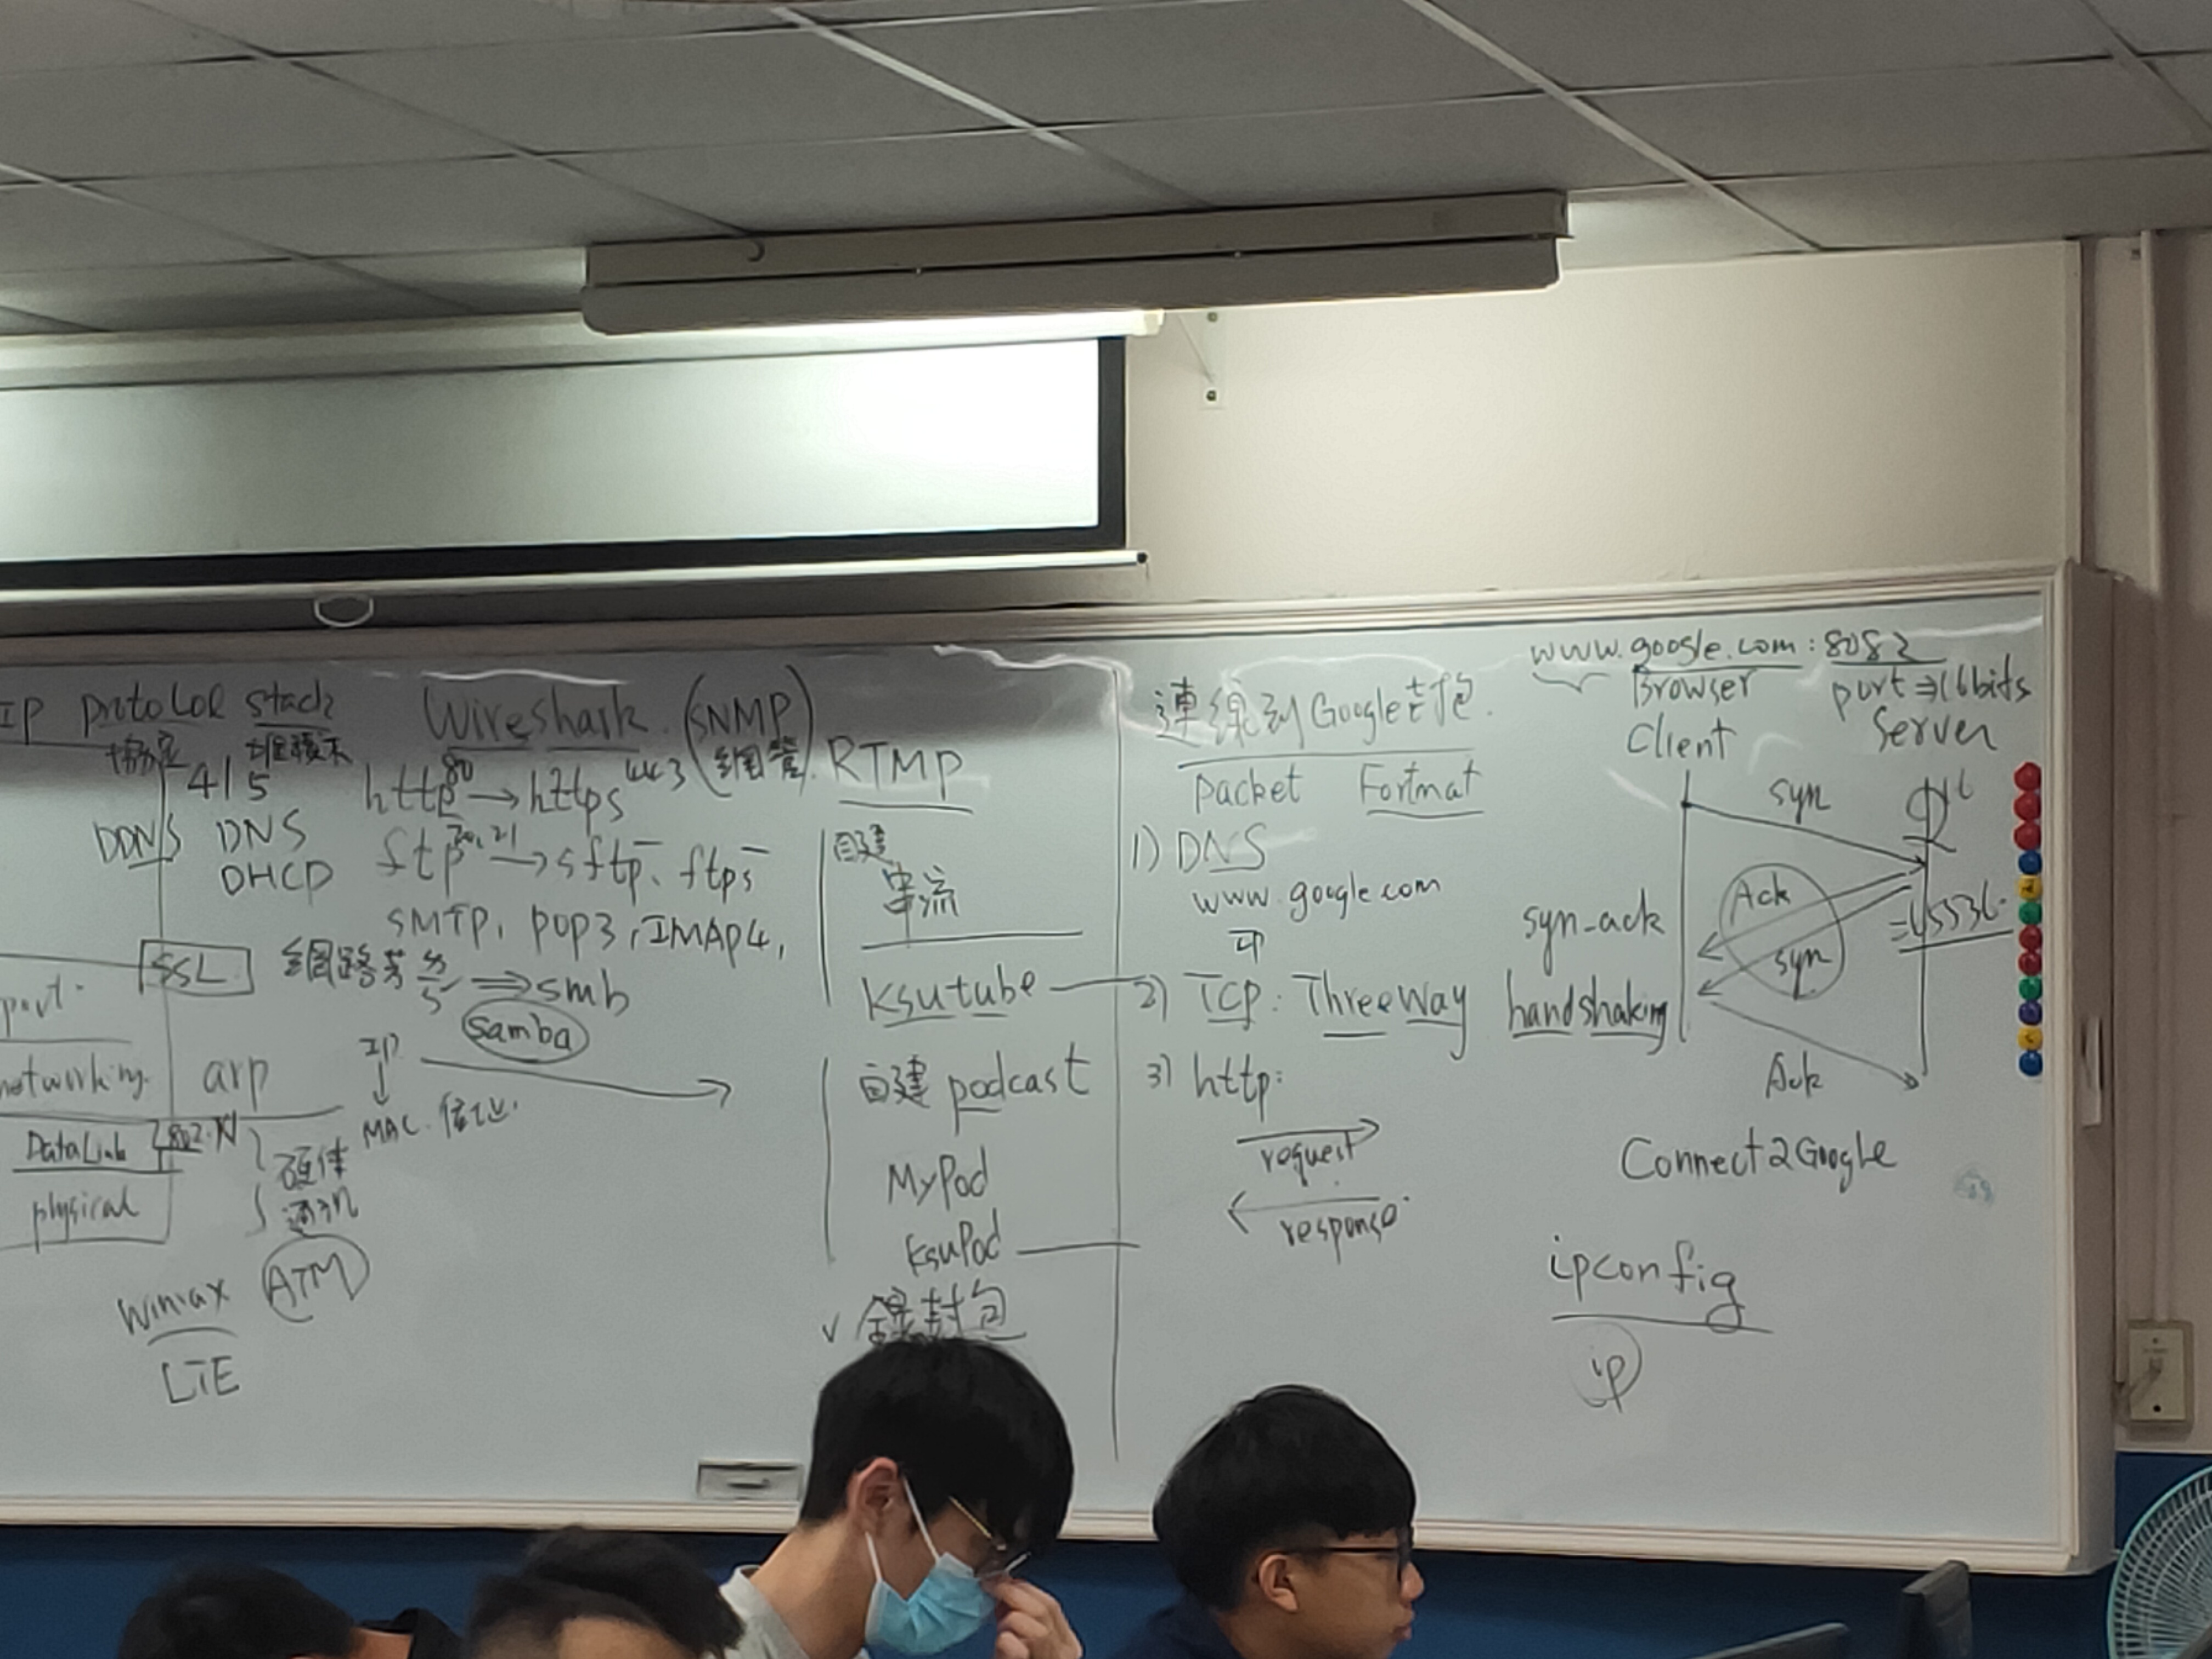 IP protocol stack
協定 堆疊
4/5
DDNS DNS
DHCP
SSL
port.
networking. arp
DataLink 802.X
physical
硬体
Wimax ATM
LTE
Wireshark. (SNMP)
網管
http 80 → https 443
ftp 20, 21 → sftp、ftps
SMTP, pop3, IMAP4,
網路芳 ⇒ smb
samba
IP
↓
MAC. 位址.
RTMP
自建
串流
Ksutube
自建 podcast
MyPod
KsuPod
v 錄封包
連線到Google
packet Fortmat
1) DNS
www.google.com
IP
2) TCP: Three Way handshaking
3) http:
request
response
www.google.com:8082
Browser port ⇒ 16 bits
Client Server
syn
2^16
syn-ack
Ack
syn
=65536.
Ack
Connect2Google
ipconfig
ip